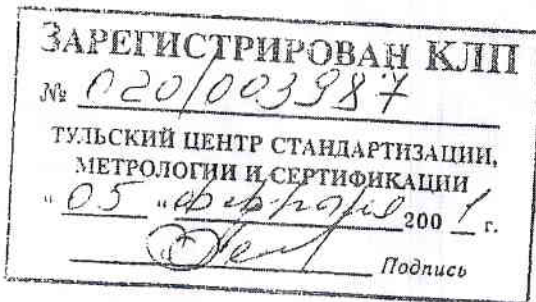 ЗАРЕГИСТРИРОВАН КЛП
№ 020/003987
ТУЛЬСКИЙ ЦЕНТР СТАНДАРТИЗАЦИИ,
МЕТРОЛОГИИ И СЕРТИФИКАЦИИ
" 05 " февраля 2001 г.
Подпись